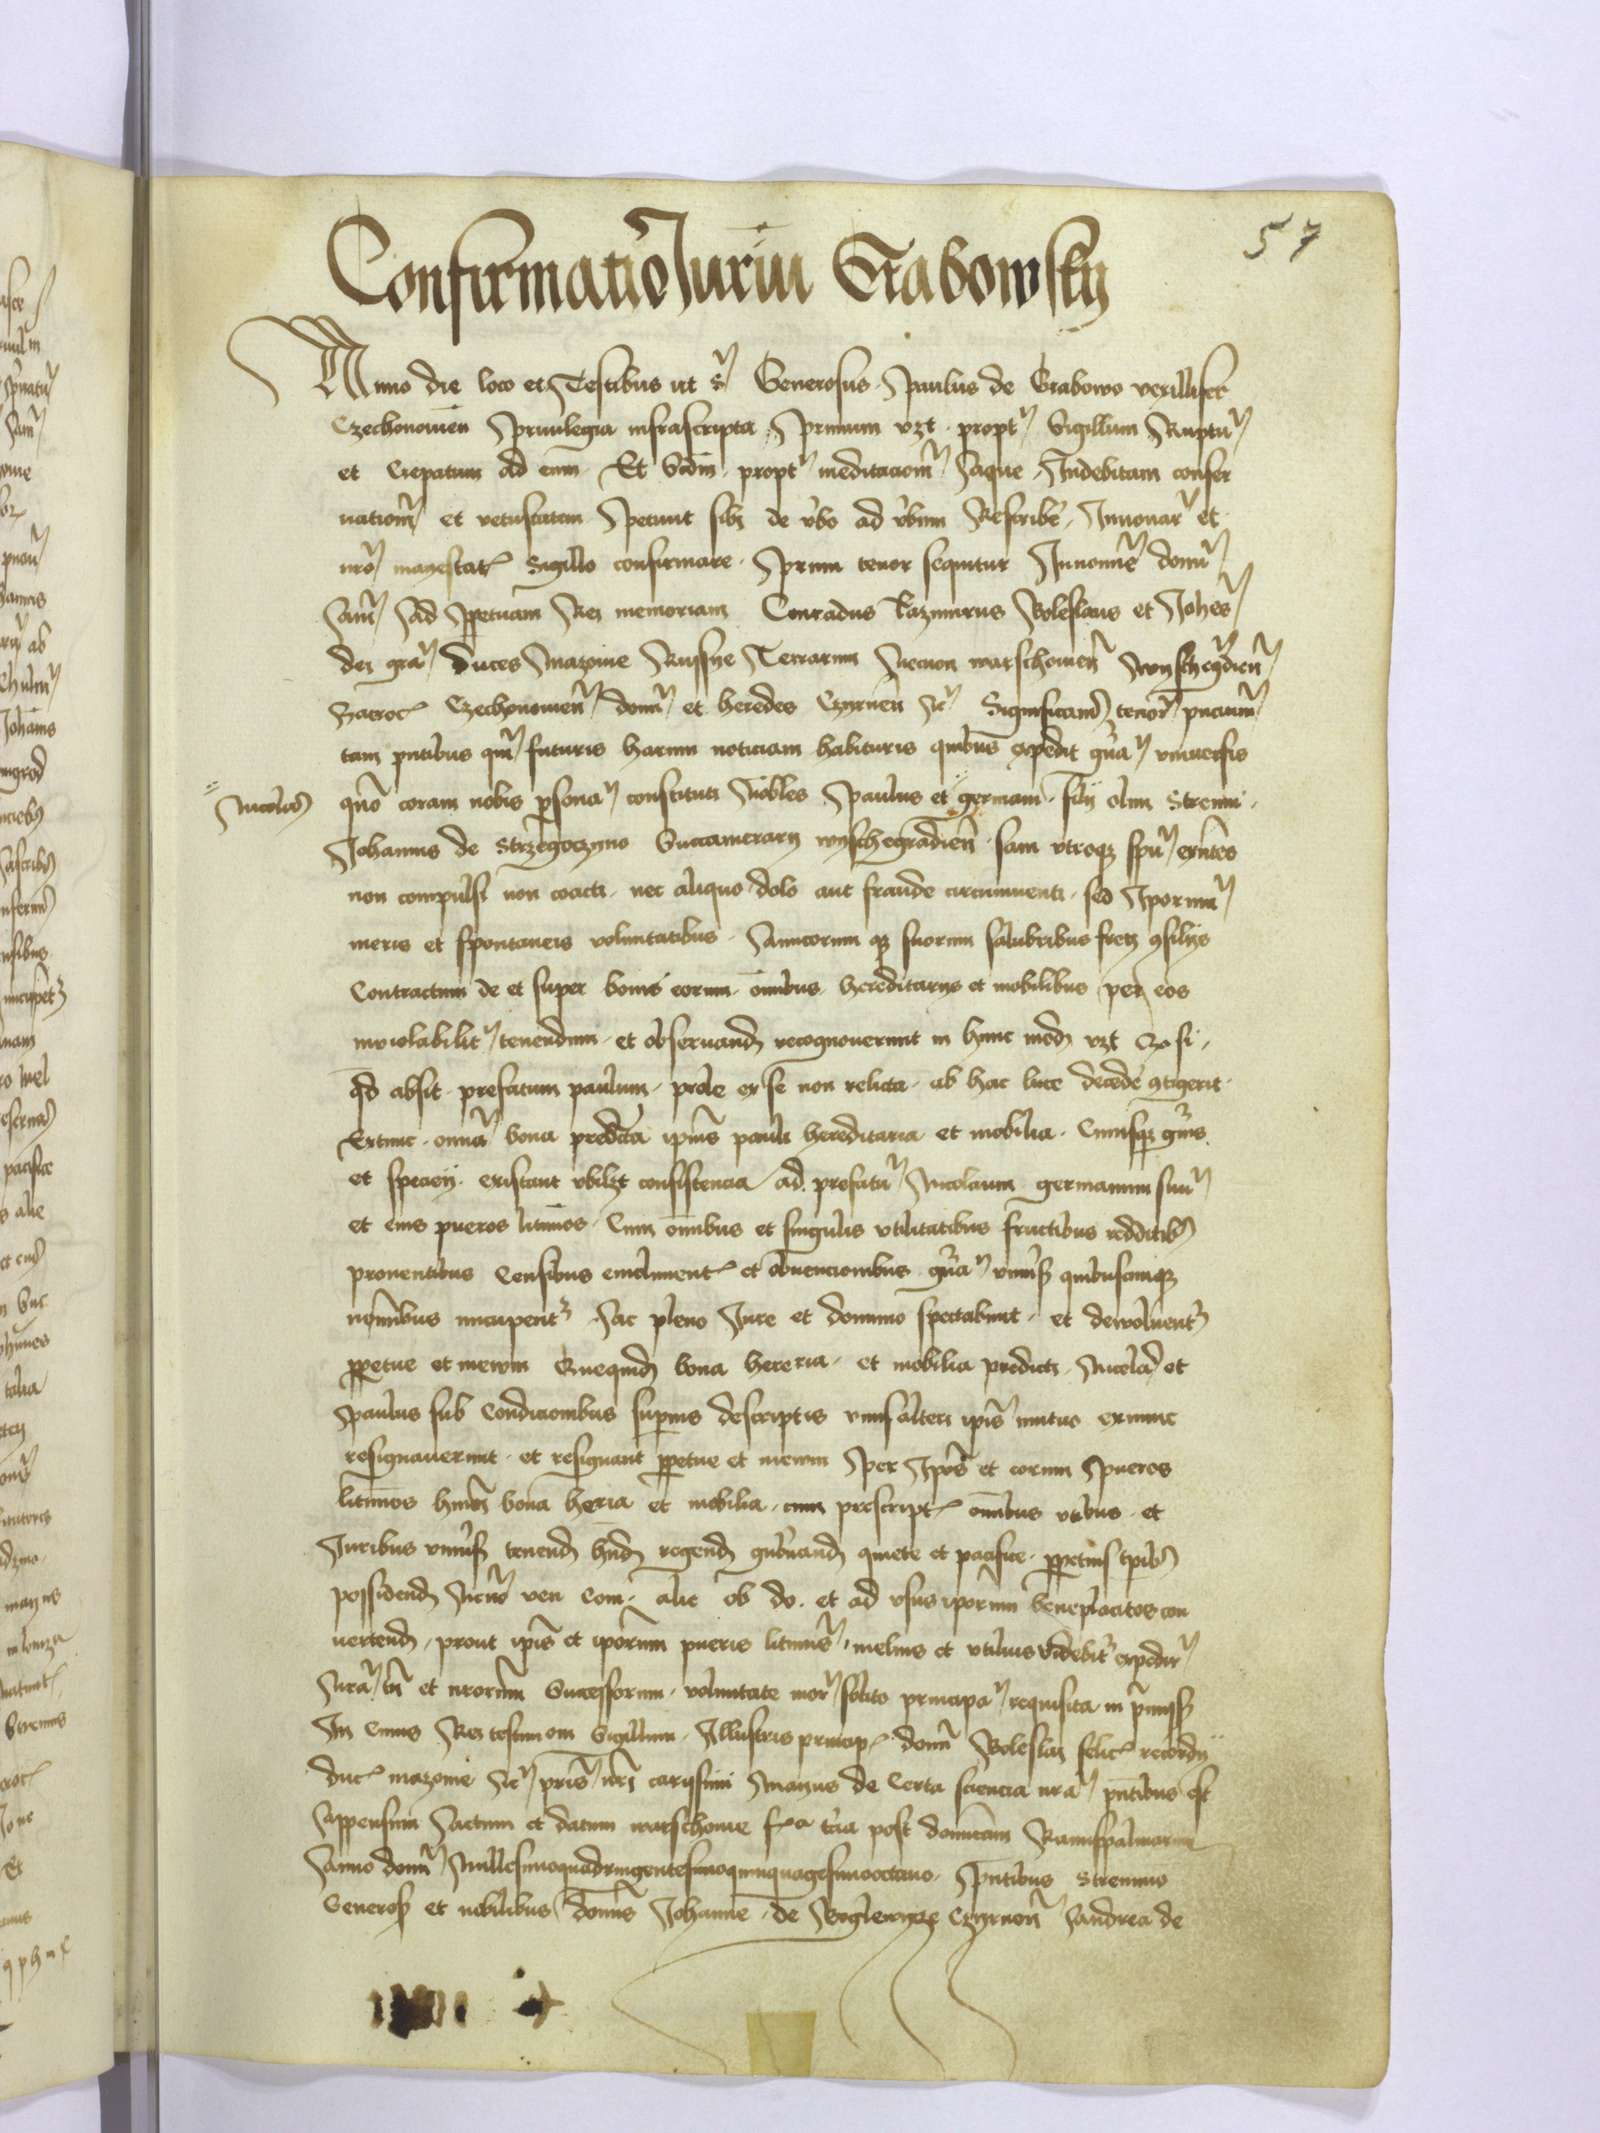 57
Confirmatio Juriu Grabowsky
Anno die loco et Testibus ut sᵃ Generosus Paulus de Grabowo vexillifer
Czechonouien Priuilegia infrascripta Primum vzt propt Sigillum Ruptu
et Crepatum ad eum Et propt Indebitam conser
uatiom et vetustatem Petiuit sibi de vbo ad vbum Rescribe Innouar et
nro mayestat Sigillo confirmare Primi tenor sequitur Innomie domi
Am Ad Ppetuam Rei memoriam Conradus Kazimirus Boleslaus et Johes
dei gra duces Mazouie Russye Terrarum Necnon warschouien wyschegradien
Zacroc Czechonouien domi et heredes Czyrnen Ac Significam tenor pncium
tam pntibus qm futuris harum noticiam habituris quibus expedit gna vniuersis
Nicolaus
quo coram nobis psona constituti Nobiles Paulus et germani filij olim Strenui
Johannis de Strzegoczyno Succamerarij wyschegradien sani vtroqz spu exntes
non compulsi non coacti nec aliquo dolo aut fraude circumuenti sed Iporum
meris et spontaneis voluntatibus Amicorum qz suorum salubribus freti gsilijs
Contractum de et super bonis eorum omibus hereditarys et mobilibus per eos
inuiolabilit tenendum et obseruand recognouerunt in hunc mod vzt Q si
qd absit prefatum paulum prole ex se non relicta ab hac luce decede gtigerit
Extunc omia bona predicta ipius pauli hereditaria et mobilia Cuiusqz gnis
et speciei existant vbilzt consistencia ad prefatu Nicolaum germanum suu
et eius pueros litimos Cum omibus et singulis vtilitatibus fructibus redditib
prouentibus Censibus emolument et obuencionibus gna vniuis quibuscumqz
nominibus nucupent Ac pleno Jure et dominio spectabunt et deuoluent
ppetue et inewm Quequid bona hereria et mobilia predicti Nicola et
Paulus sub Condicionibus supius descriptis vnus alteri ipis mutuo exnunc
resignauerunt et resignant ppetue et inewm Per Ipos et eorum Pueros
litimos hmoi bona heria et mobilia cum prescript omibus vtibus et
Juribus vniuis tenend hnd regend gubnand quiete et pacifice ppetuis tpib
possidend Necno ven Com alie ob do et ad vsus iporum beneplacitos con
uertend prout ipis et iporum pueris litimis melius et vtilius videbit expedir
Nra tn et nrorum Successorum voluntate mor solito principa requisita in pmiss
In Cuius Rei testimom Sigillum Illustris princip domi Boleslai felic recordij
duc mazouie Ac pris nri carissimi Maius de Certa sciencia nra pntibus est
Appensum Actum et datum warschouie fᵃ tcia post domicam Ramispalmarum
Anno domi Millesimoquadringentesimoquinquagesimooctauo Pntibus Strennuo
Generos et nobilibus domis Johanne de Czyrnen Andrea de